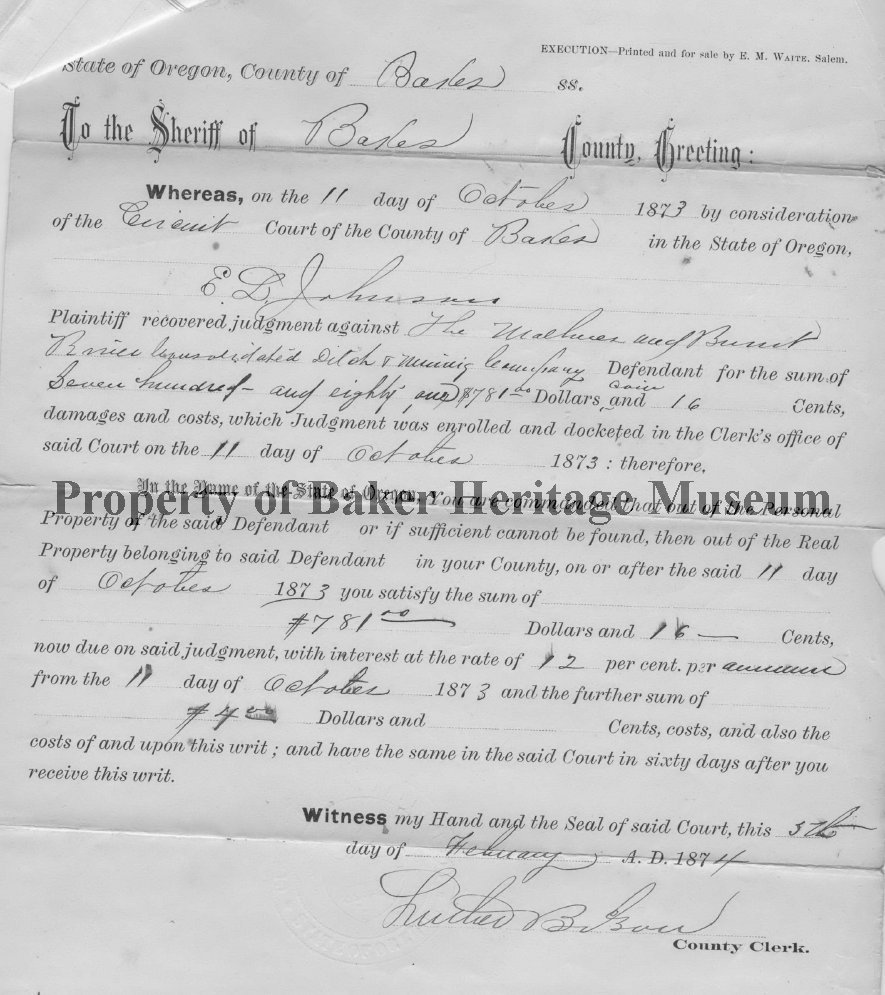 EXECUTION—Printed and for sale by E. M. WAITE, Salem.
State of Oregon, County of Baker ss.
To the Sheriff of Baker County, Greeting:
Whereas, on the 11 day of October 1873 by consideration
of the Circuit Court of the County of Baker in the State of Oregon,
E. D. Johnson
Plaintiff recovered judgment against The Malhuer and Burnt
River Consolidated Ditch & Mining Company Defendant for the sum of
Seven hundred and eighty one $781 00 Dollars coin and 16 Cents,
damages and costs, which Judgment was enrolled and docketed in the Clerk's office of
said Court on the 11 day of October 1873: therefore,
In the Name of the State of Oregon, You are commanded that out of the Personal
Property of Baker Heritage Museum
Property of the said Defendant or if sufficient cannot be found, then out of the Real
Property belonging to said Defendant in your County, on or after the said 11 day
of October 1873 you satisfy the sum of
$781 00 Dollars and 16 Cents,
now due on said judgment, with interest at the rate of 12 per cent. per annum
from the 11 day of October 1873 and the further sum of
$4 00 Dollars and Cents, costs, and also the
costs of and upon this writ; and have the same in the said Court in sixty days after you
receive this writ.
Witness my Hand and the Seal of said Court, this 5th
day of February A. D. 1874
Luther B Ison
County Clerk.